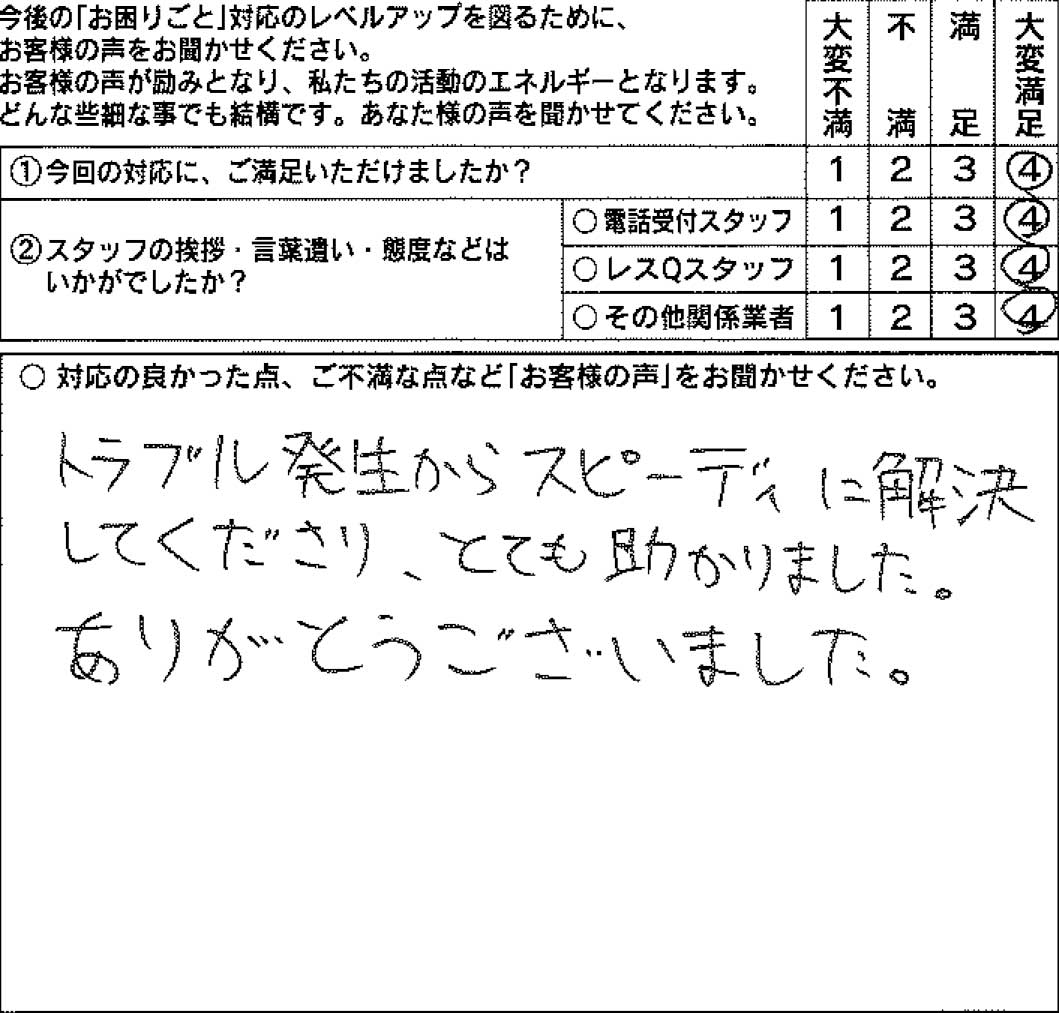 今後の｢お困りごと｣対応のレベルアップを図るために、
お客様の声をお聞かせください。
お客様の声が励みとなり、私たちの活動のエネルギーとなります。
どんな些細な事でも結構です。あなた様の声を聞かせてください。
大変不満 不満 満足 大変満足
①今回の対応に、ご満足いただけましたか？ 1 2 3 4
②スタッフの挨拶・言葉遣い・態度などは
いかがでしたか？
○電話受付スタッフ 1 2 3 4
○レスQスタッフ 1 2 3 4
○その他関係業者 1 2 3 4
○ 対応の良かった点、ご不満な点など｢お客様の声｣をお聞かせください。
トラブル発生からスピーディに解決
してくださり、とても助かりました。
ありがとうございました。